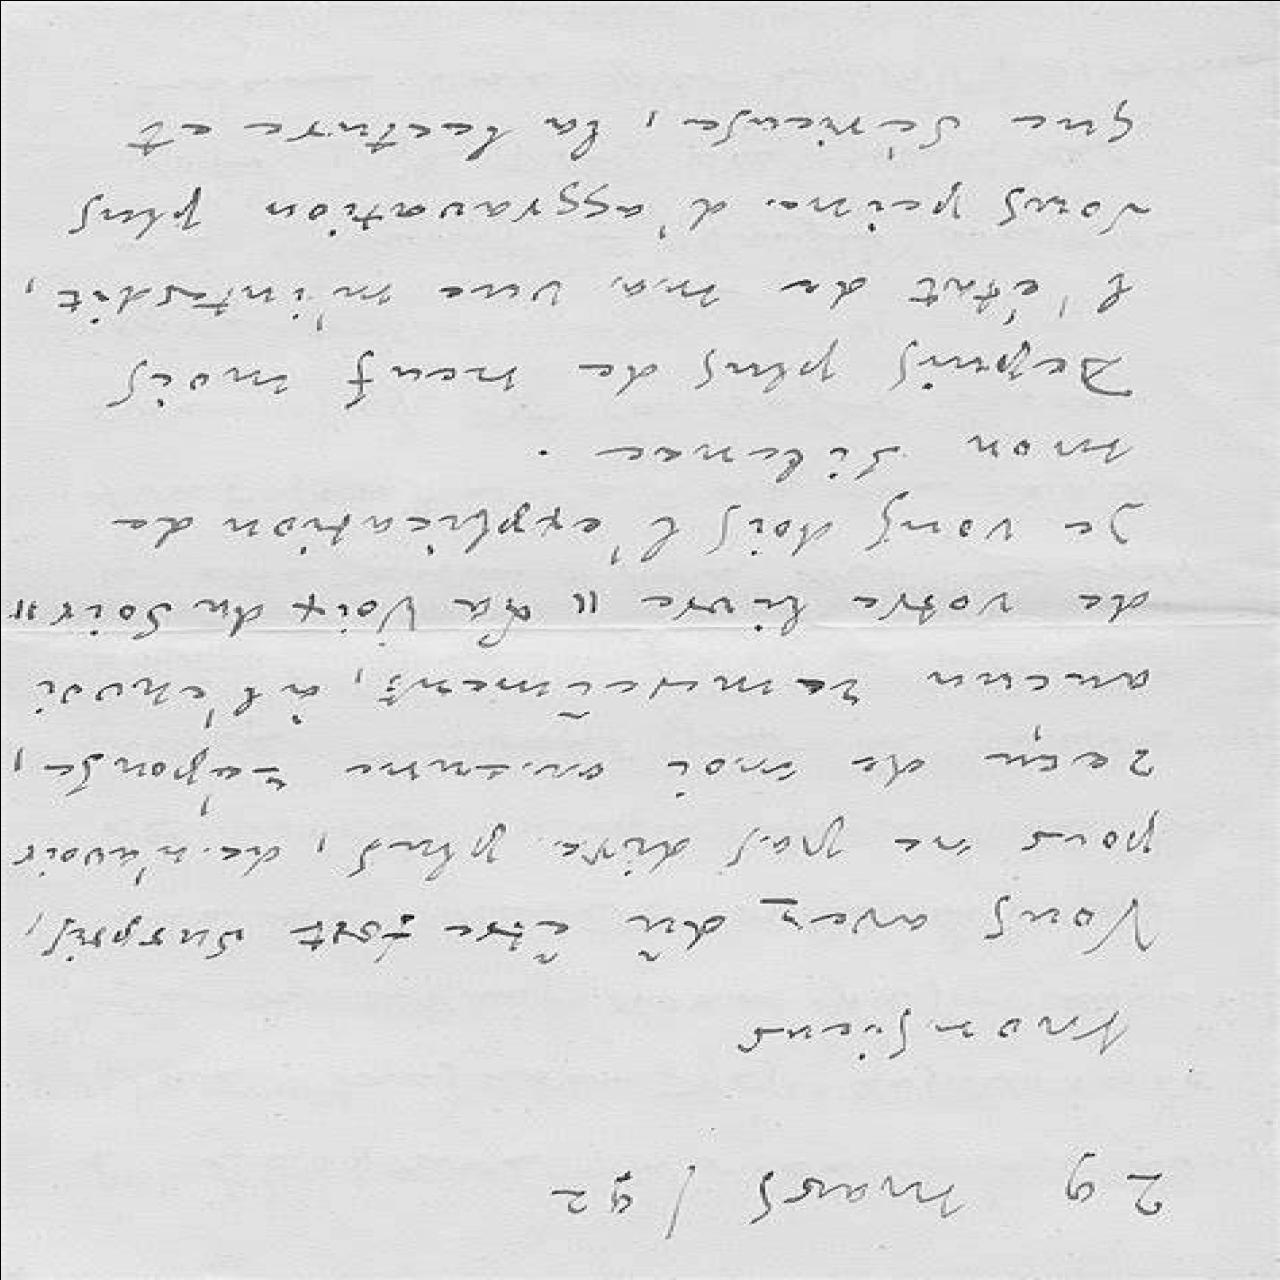 29 mars / 92
Monsieur
Vous avez dû être fort surpris,
pour ne pas dire plus, de n'avoir
reçu de moi aucune réponse,
aucun remerciement, à l'envoi
de votre livre "La Voix du Soir"
Je vous dois l'explication de
mon silence.
Depuis plus de neuf mois
l'état de ma vue m'interdit,
sous peine d'aggravation plus
que sérieuse, la lecture et